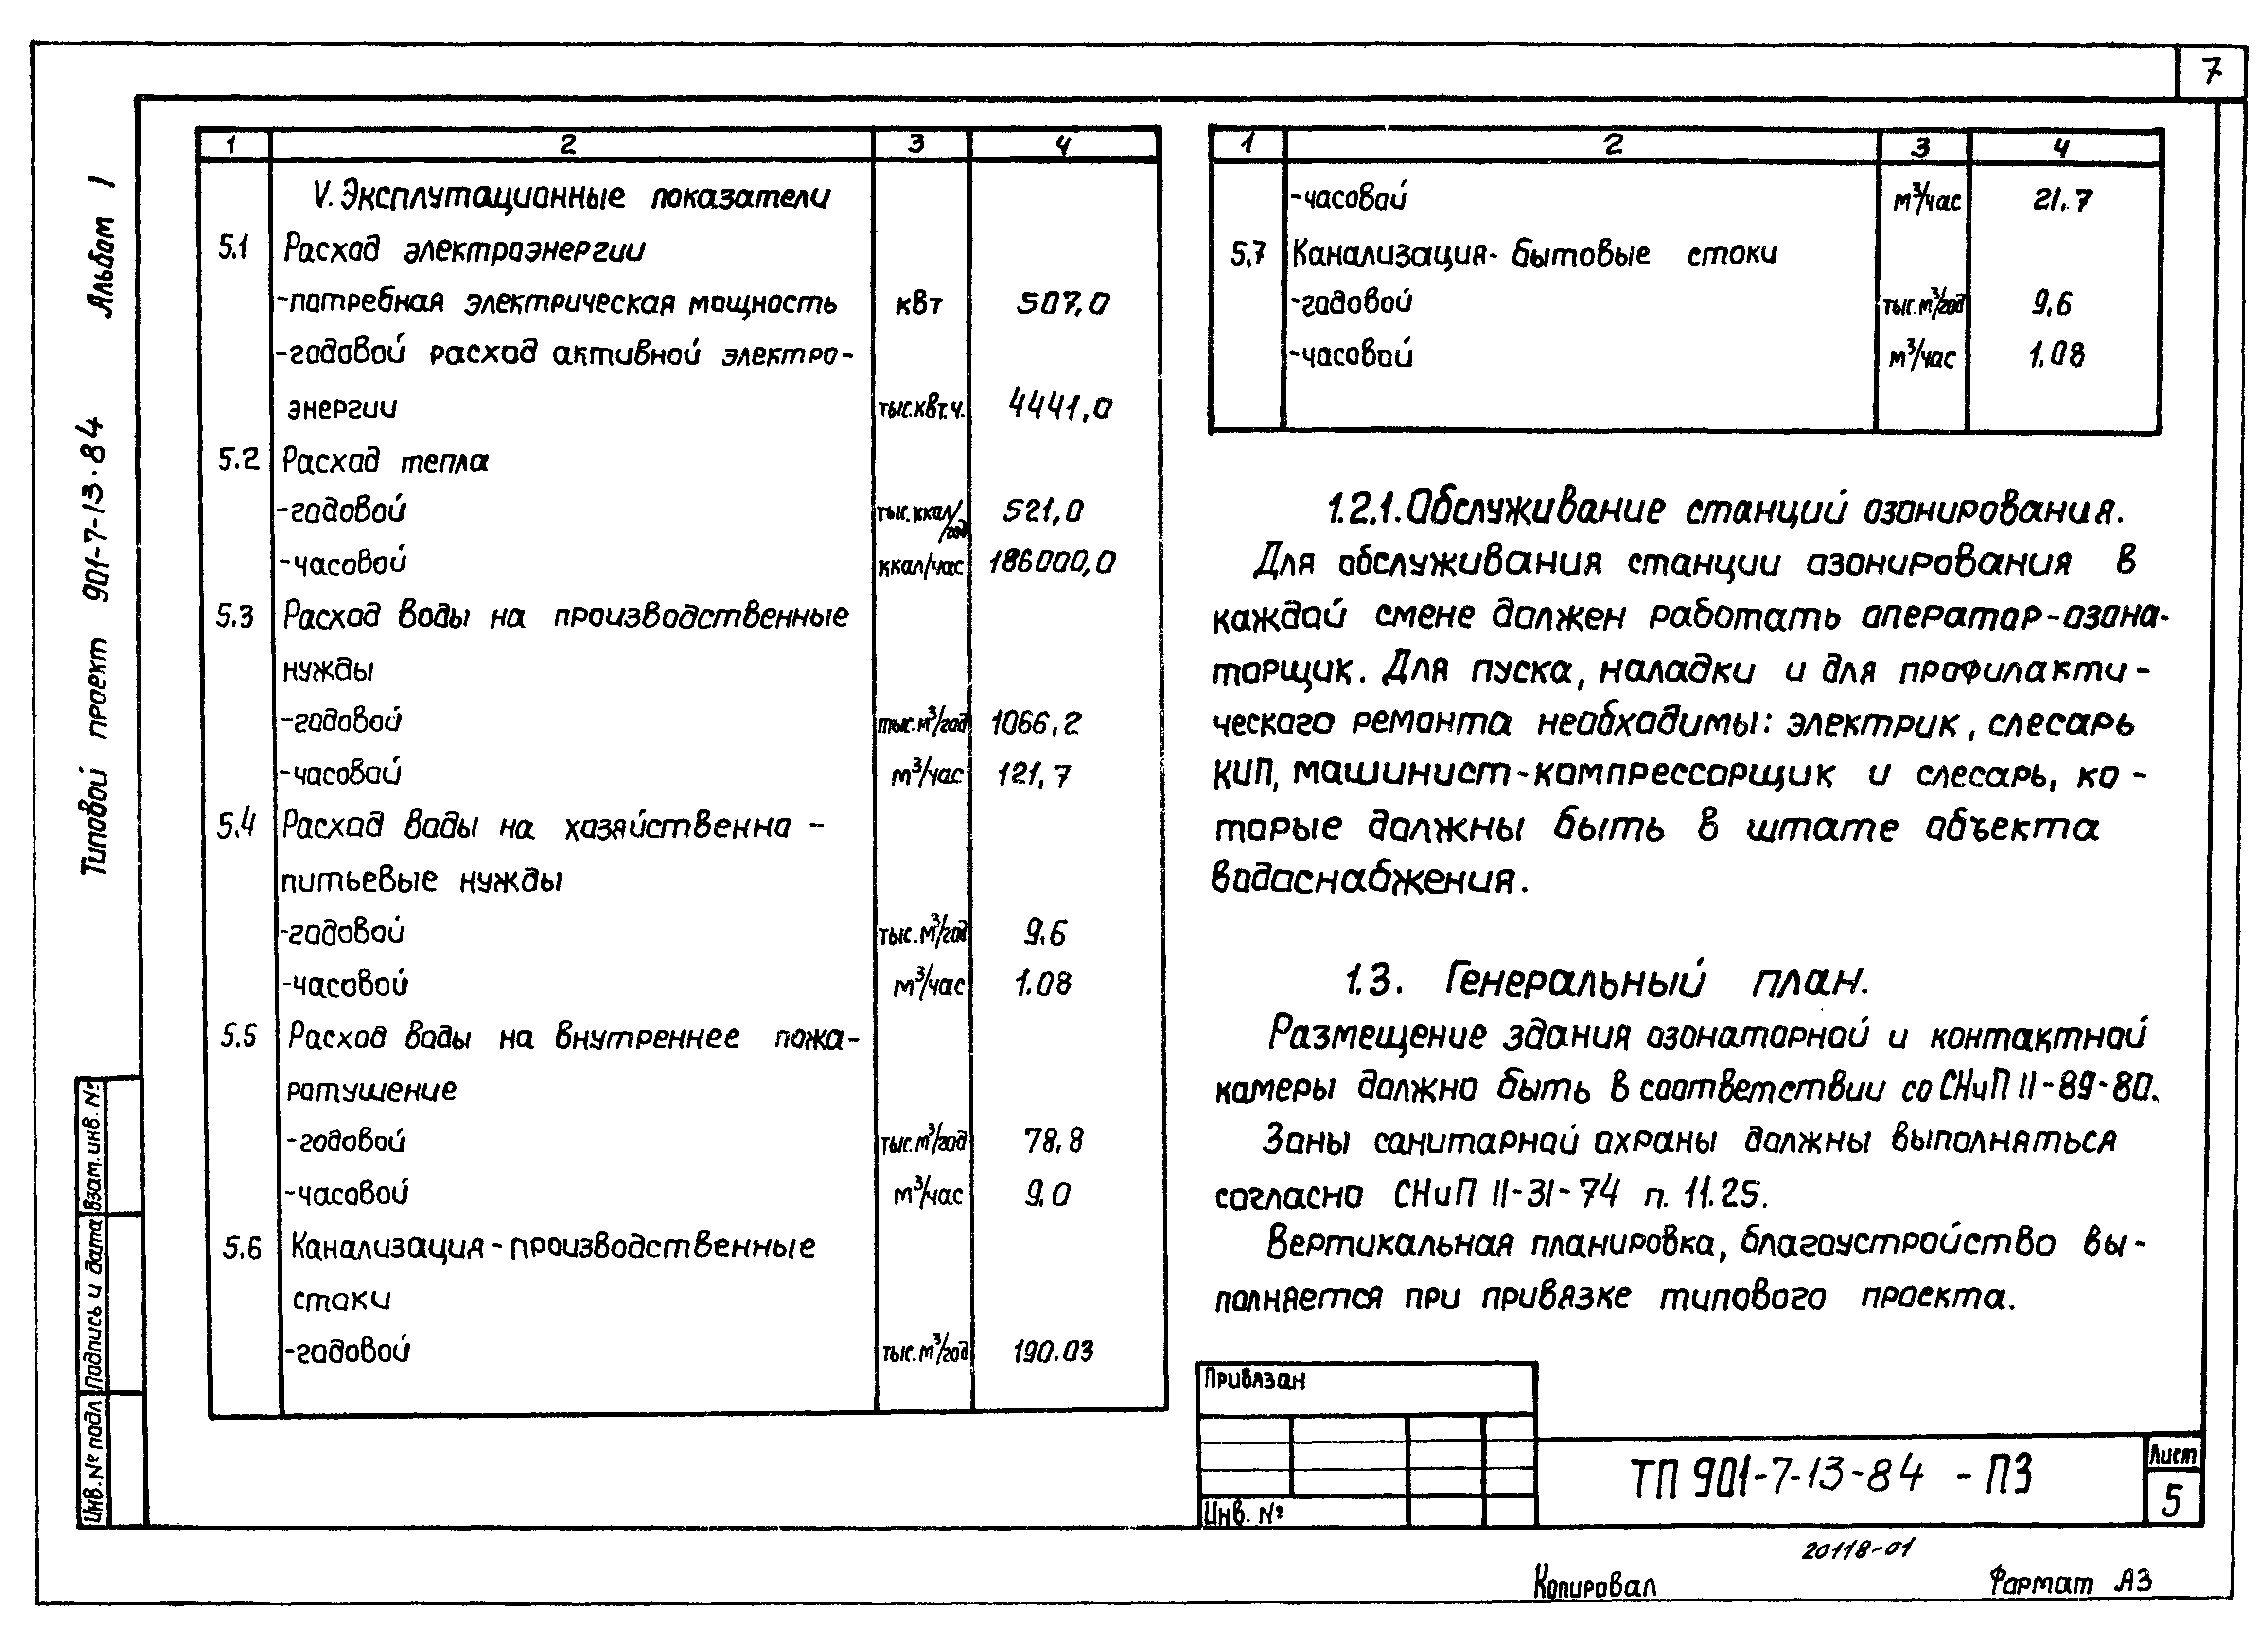 7
Альбом 1
Типовой проект 901-7-13.84
Взам. инв. №
Подпись и дата
Инв. № подл
1 2 3 4
V. Эксплутационные показатели
5.1 Расход электроэнергии
-потребная электрическая мощность квт 507,0
-годовой расход активной электро-
энергии тыс.квт.ч. 4441,0
5.2 Расход тепла
-годовой тыс.ккал/год 521,0
-часовой ккал/час 186000,0
5.3 Расход воды на производственные
нужды
-годовой тыс.м³/год 1066,2
-часовой м³/час 121,7
5.4 Расход воды на хозяйственно -
питьевые нужды
-годовой тыс.м³/год 9.6
-часовой м³/час 1.08
5.5 Расход воды на внутреннее пожа-
ротушение
-годовой тыс.м³/год 78,8
-часовой м³/час 9,0
5.6 Канализация-производственные
стоки
-годовой тыс.м³/год 190.03
1 2 3 4
-часовой м³/час 21.7
5,7 Канализация- бытовые стоки
-годовой тыс.м³/год 9,6
-часовой м³/час 1.08
1.2.1. Обслуживание станций озонирования.
Для обслуживания станции озонирования в
каждой смене должен работать оператор-озона-
торщик. Для пуска, наладки и для профилакти-
ческого ремонта необходимы: электрик, слесарь
КИП, машинист-компрессорщик и слесарь, ко-
торые должны быть в штате объекта
водоснабжения.
1.3. Генеральный план.
Размещение здания озонаторной и контактной
камеры должно быть в соответствии со СНиП II-89-80.
Зоны санитарной охраны должны выполняться
согласно СНиП II-31-74 п. 11.25.
Вертикальная планировка, благоустройство вы-
полняется при привязке типового проекта.
Привязан
Инв. №
ТП 901-7-13-84 -ПЗ
Лист
5
20118-01
Копировал Формат А3